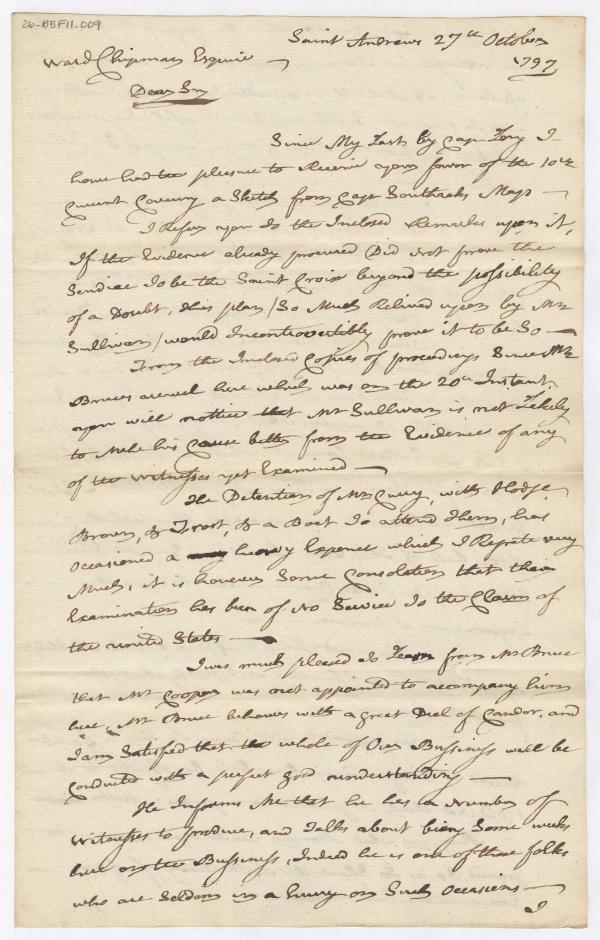 26-B5F11.009
Saint Andrews 27th October
1797
Ward Chipman Esquire
Dear Sir
Since My Last by Capn I
have had the pleasure to Receive your favor of the 10th
Current Covering a Sketch from Capn Southacks Map
I Refer you to the Inclosed Remarks upon it,
If the Evidence already procured Did Not prove the
to be the Saint Croix beyond the possibility
of a Doubt, this plan / So Much Relied upon by Mr
Sullivan / would Incontrovertibly prove it to be So
From the Inclosed Copies of proceedings Since Mr
Bruces here which was on the 20th Instant.
you will notice that Mr Sullivan is not Likely
to Make his Cause better from the Evidence of any
of the Witnesses yet Examined
The Detention of Mr Curry, with
Brown, & Frost, & a Boat to attend them, has
Occasioned a heavy Expence which I Regrete very
Much, it is however Some Consolation that their
Examination has been of No Service to the Claim of
the united States
I was much pleased to Learn from Mr Bruce
that Mr Cooper was not appointed to accompany him
here, Mr Bruce behaves with a great Deal of Candor, and
I am Satisfied that the whole of Our Bussiness will be
Conducted with a perfect good understanding
He Informs Me that he has a Number of
Witnesses to produce, and Talks about being Some weeks
here on the Bussiness, Indeed he is one of those folks
who are Seldom in a hurry on Such Occasions
I